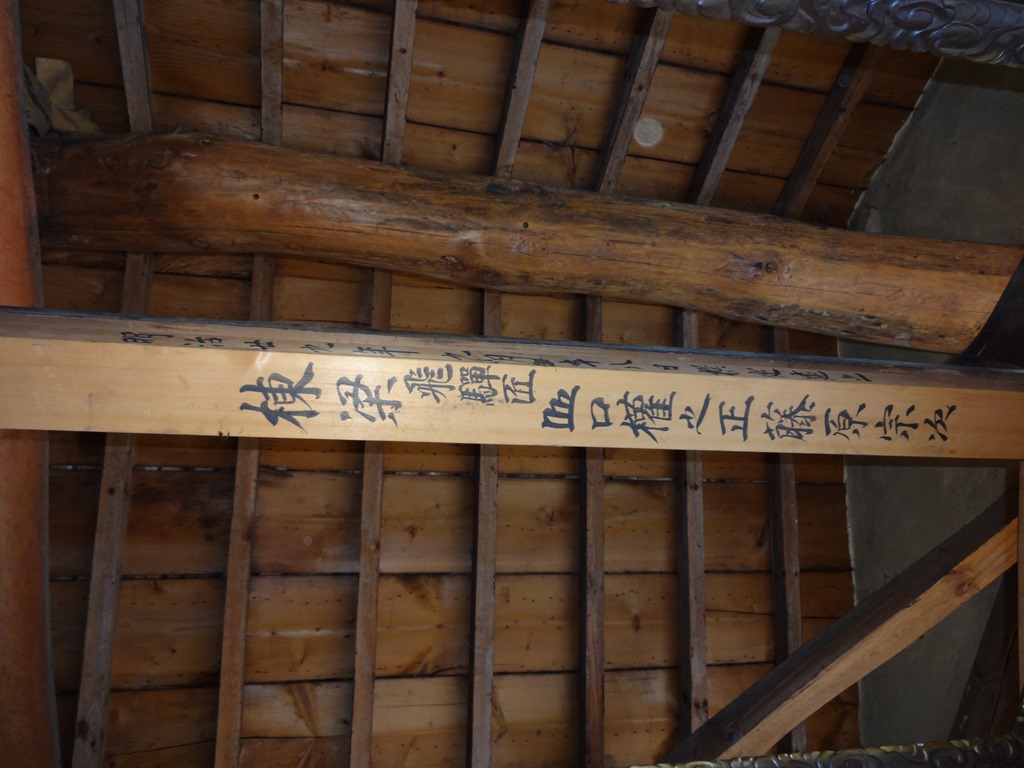 明治廿九年九月 八日
棟梁飛驒匠 山口權之正藤原宗次